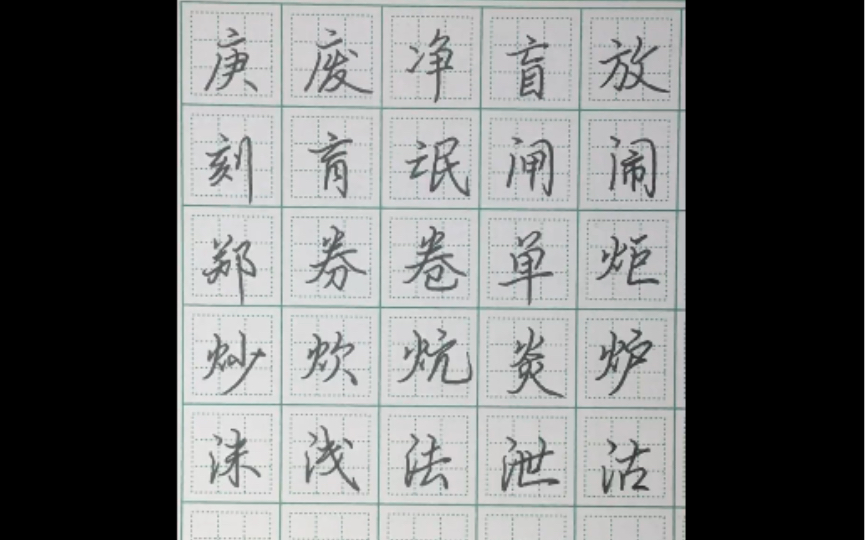 庚废净盲放
刻育氓闸闹
郑券卷单炬
炒炊炕炎炉
沫浅法泄沽